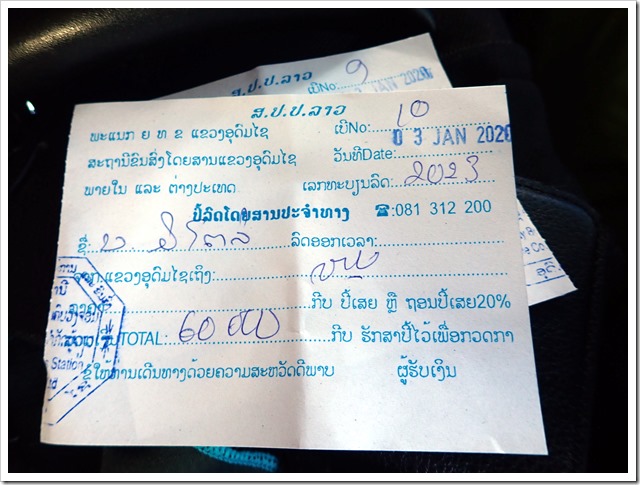 ສ.ປ.ປ.ລາວ
ເບີNo: 9
JAN 2020
ສ.ປ.ປ.ລາວ
ພະແນກ ຍ ທ ຂ ແຂວງອຸດົມໄຊ ເບີNo: 10
ສະຖານີຂົນສົ່ງໂດຍສານແຂວງອຸດົມໄຊ ວັນທີDate: 03 JAN 2020
ພາຍໃນ ແລະ ຕ່າງປະເທດ ເລກທະບຽນລົດ: 2023
ປີ້ລົດໂດຍສານປະຈຳທາງ ☎:081 312 200
ຊື່: ລົດອອກເວລາ:
ຈາກ ແຂວງອຸດົມໄຊເຖິງ:
ລາຄາ ກີບ ປີ້ເສຍ ຫຼື ຖອນປີ້ເສຍ20%
TOTAL: 60000 ກີບ ຮັກສາປີ້ໄວ້ເພື່ອກວດກາ
ຂໍໃຫ້ການເດີນທາງດ້ວຍຄວາມສະຫວັດດີພາບ ຜູ້ຮັບເງິນ
Station